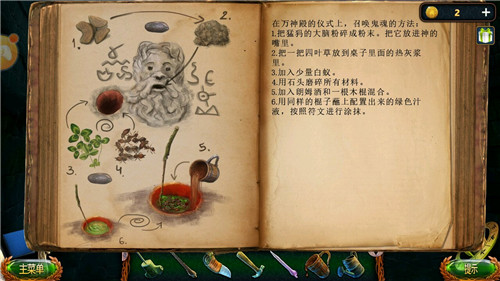 1.
2.
3.
4.
5.
6.
在万神殿的仪式上，召唤鬼魂的方法：
1.把猛犸的大脑粉碎成粉末。把它放进神的
嘴里。
2.把一把四叶草放到桌子里面的热灰浆
里。
3.加入少量白蚁。
4.用石头磨碎所有材料。
5.加入朗姆酒和一根木棍混合。
6.用同样的棍子蘸上配置出来的绿色汁
液，按照符文进行涂抹。
2 +
主菜单
提示